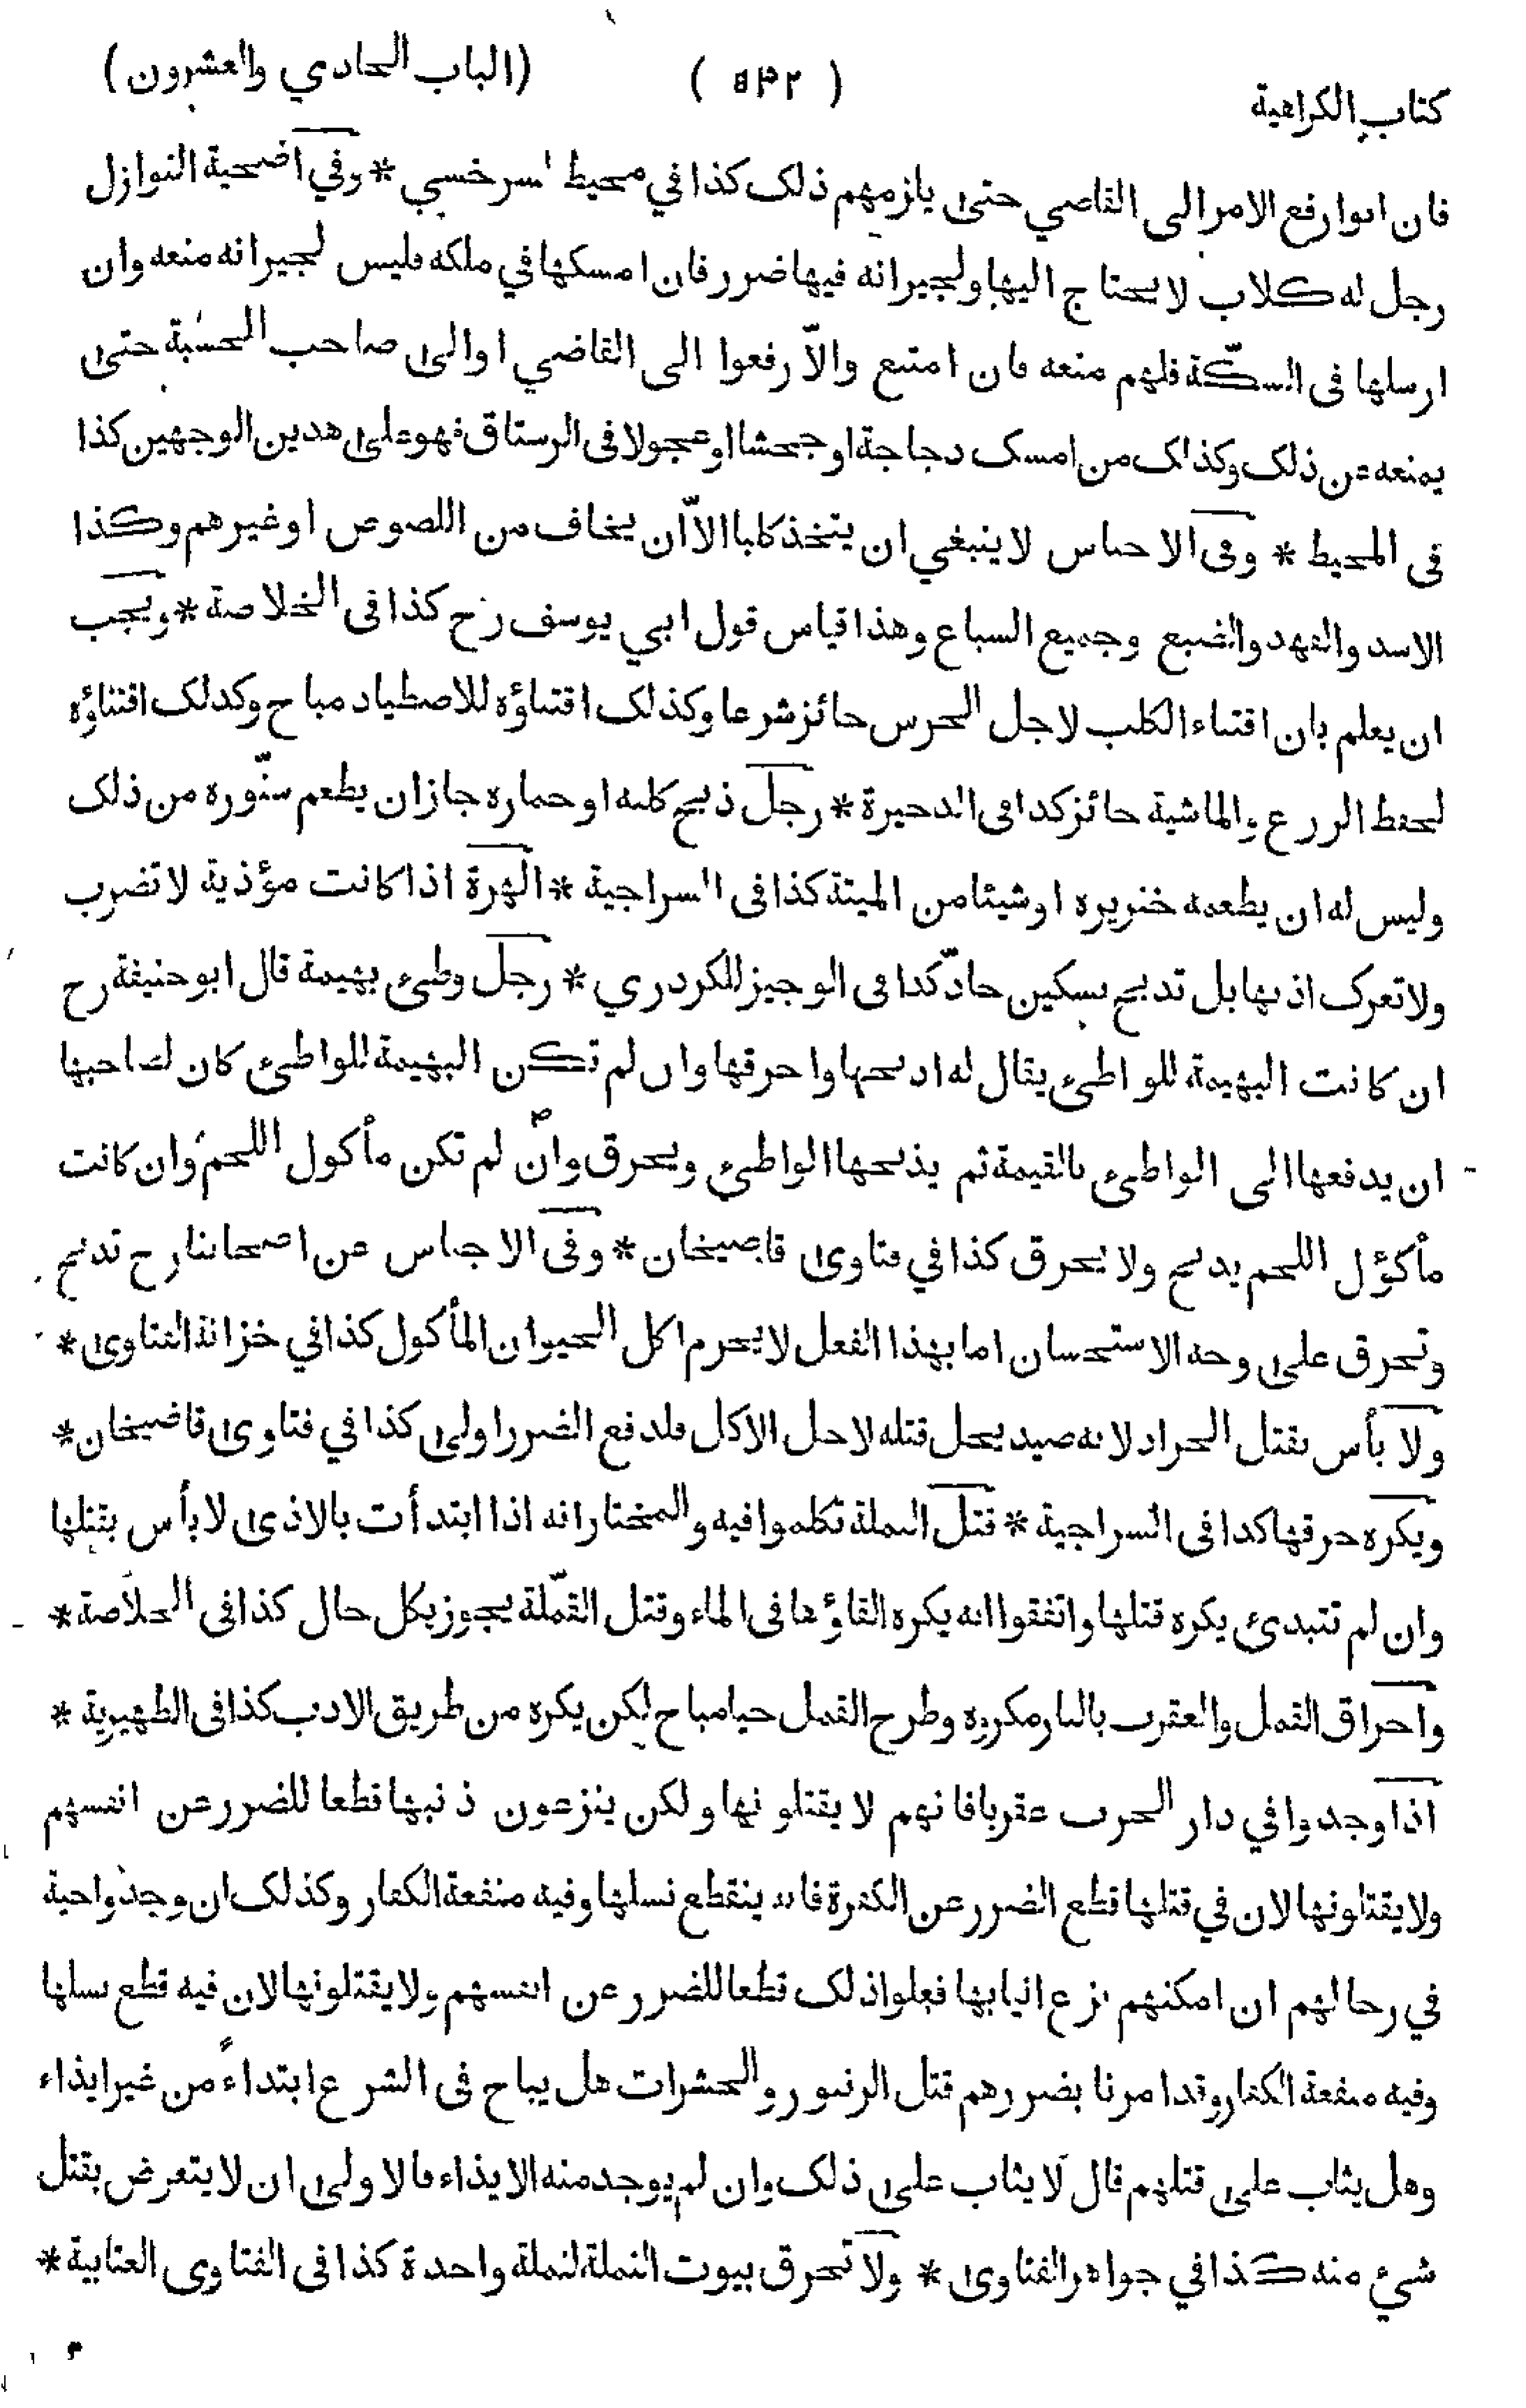 كتاب الكراهية ( ٥٣٢ ) (الباب الحادي والعشرون)
فان ابوا رفع الامر الى القاضي حتى يلزمهم ذلك كذا في محيط السرخسي * وفي اضحية النوازل
رجل له كلاب لا يحتاج اليها ولجيرانه فيها ضرر فان امسكها في ملكه فليس لجيرانه منعه وان
ارسلها في السكّة فلهم منعه فان امتنع والّا رفعوا الى القاضي او الى صاحب الحسبة حتى
يمنعه عن ذلك وكذلك من امسك دجاجة او جحشا او عجولا في الرستاق فهو على هذين الوجهين كذا
في المحيط * وفي الاجناس لا ينبغي ان يتخذ كلبا الاّ ان يخاف من اللصوص او غيرهم وكذا
الاسد والفهد والضبع وجميع السباع وهذا قياس قول ابي يوسف رح كذا في الخلاصة * ويجب
ان يعلم بان اقتناء الكلب لاجل الحرس جائز شرعا وكذلك اقتناؤه للاصطياد مباح وكذلك اقتناؤه
لحفظ الزرع والماشية جائز كذا في الذخيرة * رجل ذبح كلبه او حماره جاز ان يطعم سنّوره من ذلك
وليس له ان يطعمه خنزيره او شيئا من الميتة كذا في السراجية * الهرة اذا كانت مؤذية لا تضرب
ولا تعرك اذنها بل تذبح بسكين حادّ كذا في الوجيز للكردري * رجل وطئ بهيمة قال ابو حنيفة رح
ان كانت البهيمة للواطئ يقال له اذبحها واحرقها وان لم تكن البهيمة للواطئ كان لصاحبها
ان يدفعها الى الواطئ بالقيمة ثم يذبحها الواطئ ويحرق وان لم تكن مأكول اللحم وان كانت
مأكول اللحم يذبح ولا يحرق كذا في فتاوى قاضيخان * وفي الاجناس عن اصحابنا رح تذبح
وتحرق على وجه الاستحسان اما بهذا الفعل لا يحرم اكل الحيوان المأكول كذا في خزانة الفتاوى *
ولا بأس بقتل الجراد لانه صيد يحل قتله لاجل الاكل فلدفع الضرر اولى كذا في فتاوى قاضيخان *
ويكره حرقها كذا في السراجية * قتل النملة تكلموا فيه والمختار انه اذا ابتدأت بالاذى لا بأس بقتلها
وان لم تبتدئ يكره قتلها واتفقوا انه يكره القاؤها في الماء وقتل القمّلة يجوز بكل حال كذا في الخلاصة *
واحراق القمل والعقرب بالنار مكروه وطرح القمل حيا مباح لكن يكره من طريق الادب كذا في الظهيرية *
اذا وجدوا في دار الحرب عقربا فانهم لا يقتلونها ولكن ينزعون ذنبها قطعا للضرر عن انفسهم
ولا يقتلونها لان في قتلها قطع الضرر عن الكفرة فانه ينقطع نسلها وفيه منفعة الكفار وكذلك ان وجدوا حية
في رحالهم ان امكنهم نزع انيابها فعلوا ذلك قطعا للضرر عن انفسهم ولا يقتلونها لان فيه قطع نسلها
وفيه منفعة الكفار وقد امرنا بضررهم قتل الزنبور والحشرات هل يباح في الشرع ابتداءً من غير ايذاء
وهل يثاب على قتلهم قال لا يثاب على ذلك وان لم يوجد منه الايذاء فالاولى ان لا يتعرض بقتل
شيء منه كذا في جواهر الفتاوى * ولا تحرق بيوت النملة لنملة واحدة كذا في الفتاوى العتابية *